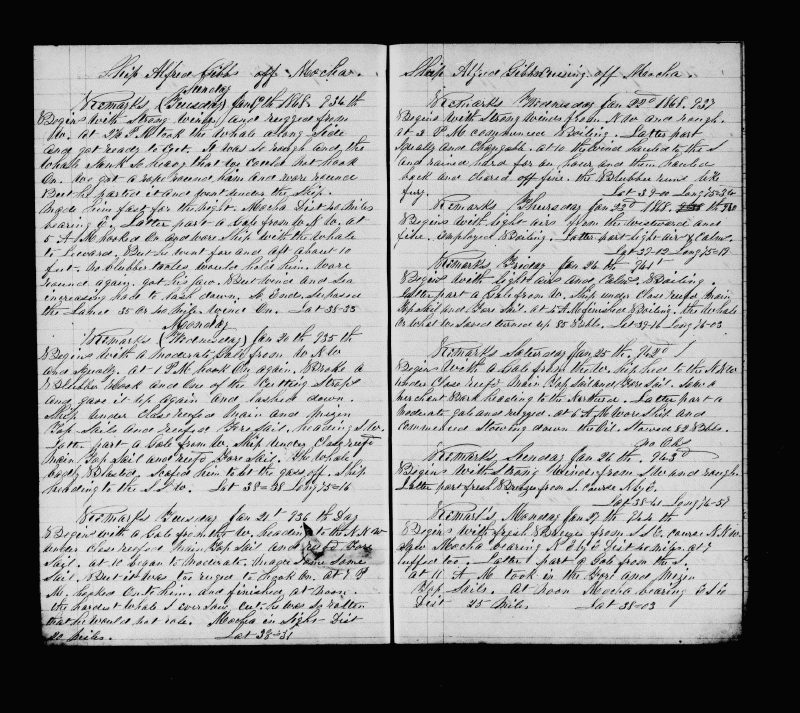 Ship Alfred Gibbs off Mocha.
Sunday
Remarks (Tuesday) Jan 19th 1868. 934th
Begins with Strong winds and rugged from
W. at 2½ P.M took the whale along Side
and got ready to Cut. It was so rough and the
whale Sank so heavy that we could not hook
On. We got a rope round him and wore round
But he parted it and went under the Ship.
made him fast for the night. Mocha Dist 40 miles
bearing E. Latter part a Gale from W.N.W. at
5 A.M hooked On and wore Ship with the whale
to Leward. But he went fore and aft about 10
feet. No blubber tackles would hold him. Wore
round again, got his face. But wind and Sea
increasing had to lash down. So Ends.
the Lance 35 Or 40 miles. Lat 38-33
Monday
Remarks (Wednesday) Jan 20th 935th
Begins with a moderate Gale from W.N.W
and Squally. at 1 P.M hook On again. Broke a
Blubber Hook and One of the Cutting Straps
and gave it up again and lashed down.
Ship under close reefed Main and Mizen
Top Sails and reefed Fore Sail. heading S.W.
Latter part a Gale from W. Ship under Close reefd
main Top Sail and reefd Fore Sail. The whale
badly Blasted. him to let the gass off. Ship
heading to the S.S.W. Lat 38=38 Long 75=16
Remarks Tuesday Jan 21st 936th Day
Begins with a Gale from the W. heading to the N.N.W
under close reefed main Top Sail and reefd Fore
Sail. at 10 began to Moderate. made Some
Sail. But it was too ruged to Hook On. at 7 P
M. hooked On to him. and finished at Noon.
the hardest whale I ever Saw Cut. he was so rotten
that he would not role. Mocha in Sight Dist
20 miles. Lat 38=31
Ship Alfred Gibbs Cruising off Mocha.
Remarks Wednesday Jan 22nd 1868. 937
Begins with Strong winds from N.W and rough.
at 2 P.M commenced Boiling. Latter part
Squally and Changable. at 10 the wind hauled to the S
and rained hard for an hour and then hauled
back and cleared off fine. the Blubber runs like
fury. Lat 39=00 Long 75=36
Remarks Thursday Jan 23d 1868. th 940
Begins with light airs from the westward and
fine. Employed Boiling. Latter part light air & Calm.
Lat 39-12 Long 75=18
Remarks Friday Jan 24th 941th
Begins with light airs and Calm. Boiling.
Latter part a Gale from W. Ship under Close reefd Main
Top Sail and Fore Sail. at 5 A.M finished Boiling. the whale
Or what we Saved turned up 85 Bbls. Lat 39-16 Long 76-03
Remarks Saturday Jan 25th. 942d
Begins with a Gale from the W. Ship hed to the N.N.W
under Close reefd Main Top Sail and Fore Sail. Saw a
merchant Bark heading to the Northerd. Latter part a
moderate gale and rugged. at 6 A.M Wore Ship and
commenced Stowing down the Oil. Stowed 82 Bbls.
No Obs
Remarks Sunday Jan 26th. 943d
Begins with Strong winds from S.W and rough.
Latter part fresh Breeze from S. course N by E.
Lat 38-41 Long 74-57
Remarks Monday Jan 27th 944th
Begins with fresh Breezes from S.S.E. Course N.N.W
Saw Mocha bearing N E by E Dist 40 miles. at 7
luffed too. Latter part a Gale from the S.
at 11 A.M. took in the Fore and Mizen
Top Sails. At Noon Mocha bearing E S E
Dist 25 miles Lat 38-03